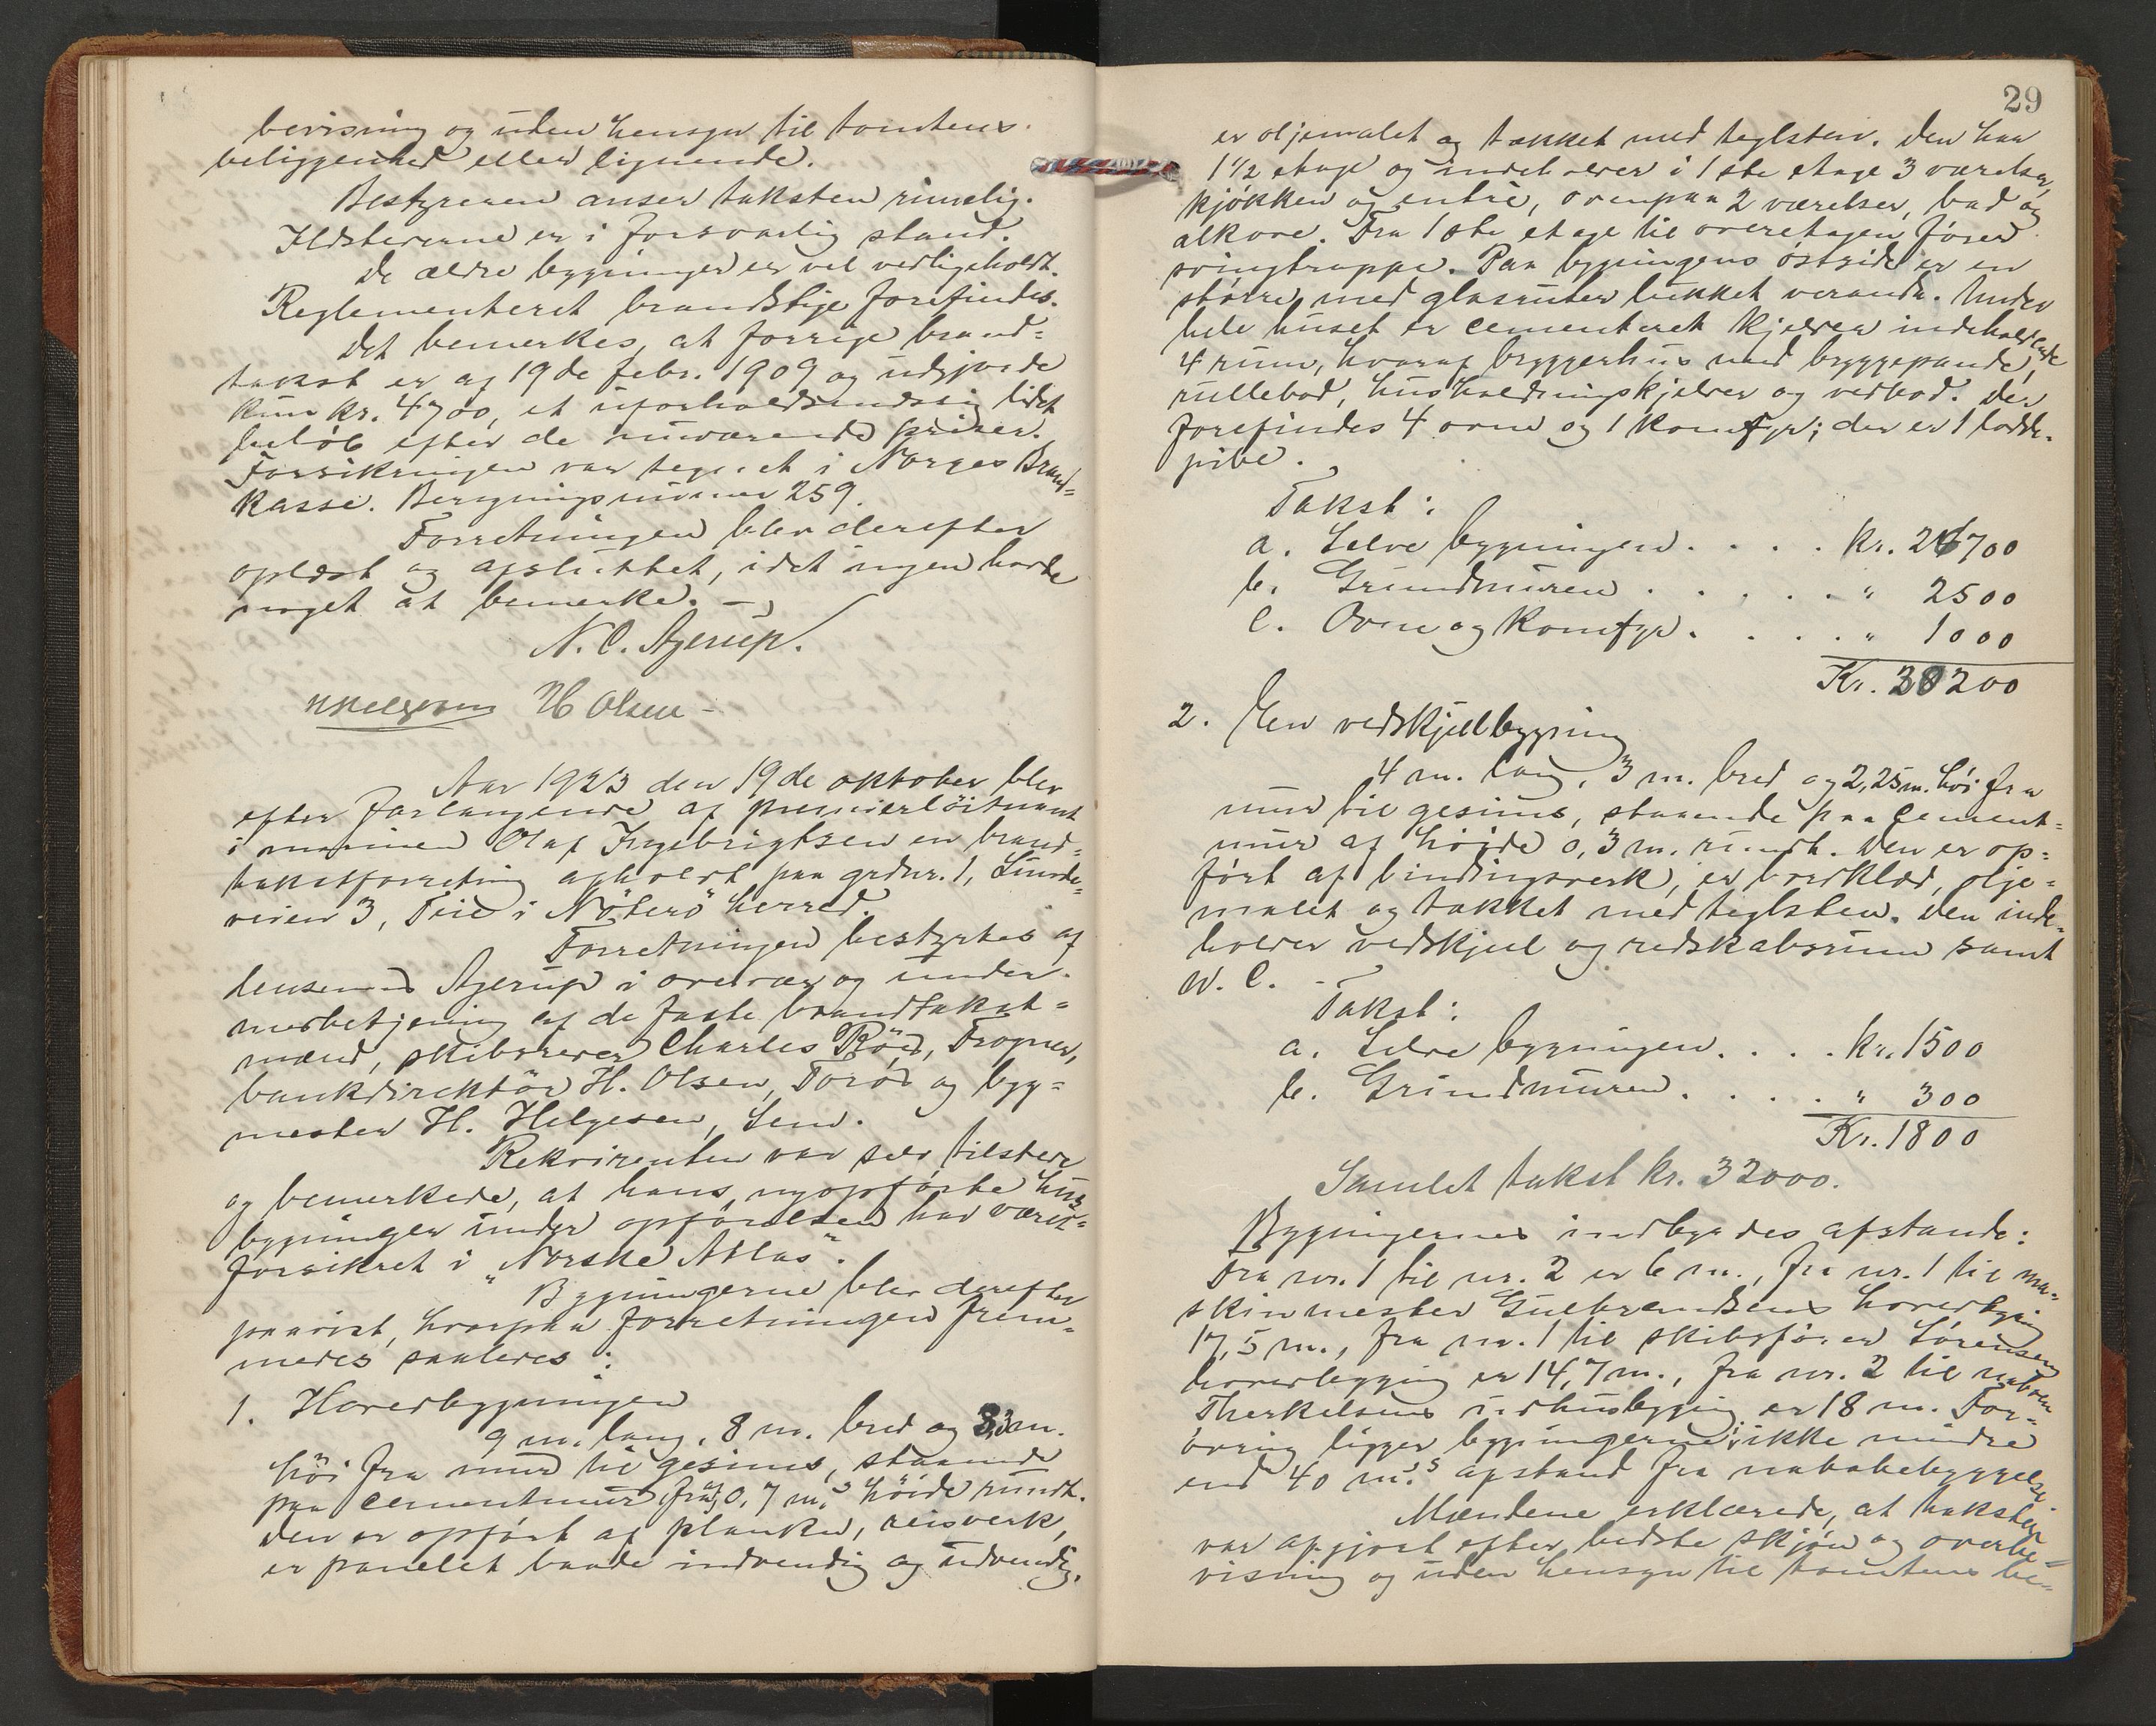 bevisning og uden hensyn til tomtens
beliggenhed eller lignende.
Bestyreren anser taksten rimelig.
Ildstederne er i forsvarlig stand.
De ældre bygninger er vel vedligeholdt.
Reglementeret brandstige forefindes.
Det bemerkes, at forrige brand=
takst er af 19de febr. 1909 og udgjorde
kun kr. 4700, et uforholdsmæssig lidet
beløb efter de nuværende priser.
Forsikringen var tegnet i Norges Brand=
kasse. Bygningsnummer 259.
Forretningen blev derefter
oplæst og afsluttet, idet ingen havde
noget at bemerke. —
N. C. Agerup.
H Olsen
Aar 1923 den 19de oktober blev
efter forlangende af premierløitnant
i marinen Olaf Ingebrigtsen en brand=
takstforretning afholdt paa grdnr. 1, Lunde=
veien 3, Teie i Nøterø herred.
Forretningen bestyrtes af
lensmand Agerup i overvær og under
medbetjening af de faste brandtakst=
mænd, skibsreder Charles Röed, Trogner,
bankdirektör H. Olsen, Torød og byg=
mester H. Helgesen, Sem.
Rekvirenten var selv tilstede
og bemerkede, at hans nyopførte hus
bygninger under opförelsen har været
forsikret i "Norske Atlas".
Bygningerne blev derefter
paavist, hvorpaa forretningen frem=
medes saaledes:
1. Hovedbygningen
9 m. lang, 8 m. bred og 3,3 m.
høi fra mur til gesims, staaende
paa cementmur fra 0,7 m.s höide rundt.
Den er opført af planker, reisverk,
er panelet baade indvendig og udvendig,
29
er oljemalet og tækket med teglsten. Den har
1 1/2 etage og indeholder i 1ste etage 3 værelser,
kjøkken og entré, ovenpaa 2 værelser, bad og
alkove. Fra 1ste etage til overetagen fører
svingtrappe. Paa bygningens østside er en
større, med glasruter lukket veranda. Under
hele huset er cementeret kjelder indeholdende
4 rum, hvoraf bryggerhus med bryggepande,
rullebod, husholdningskjelder og vedbod. Der
forefindes 4 ovne og 1 komfyr; der er 1 lodde=
pibe.
Takst:
a. Selve bygningen . . . . kr. 26700
b. Grundmuren . . . . . " 2500
c. Ovne og komfyr . . . . " 1000
Kr. 30200
2. En vedskjulbygning
4 m. lang, 3 m. bred og 2,25 m. høi fra
mur til gesims, staaende paa cement=
mur af høide 0,3 m. rundt. Den er op=
ført af bindingsverk, er bordklæd, olje=
malet og tækket med teglsten. Den inde=
holder vedskjul og redskabsrum samt
W. C. —
Takst:
a. Selve bygningen . . . . kr. 1500
b. Grundmuren . . . . " 300
Kr. 1800
Samlet takst kr. 32000.
Bygningernes indbyrdes afstande:
Fra nr. 1 til nr. 2 er 6 m., fra nr. 1 til ma=
skinmester Gulbrandsens hovedbygning
17,5 m., fra nr. 1 til skibsfører Sørensens
hovedbygging er 14,7 m., fra nr. 2 til naboen
Therkelsens udhusbygging er 18 m. For=
øvrig ligger bygningerne ikke mindre
end 40 m.s afstand fra nabobebyggelse.
Mændene erklærede, at taksten
var afgjort efter bedste skjøn og overbe=
visning og uden hensyn til tomtens be=